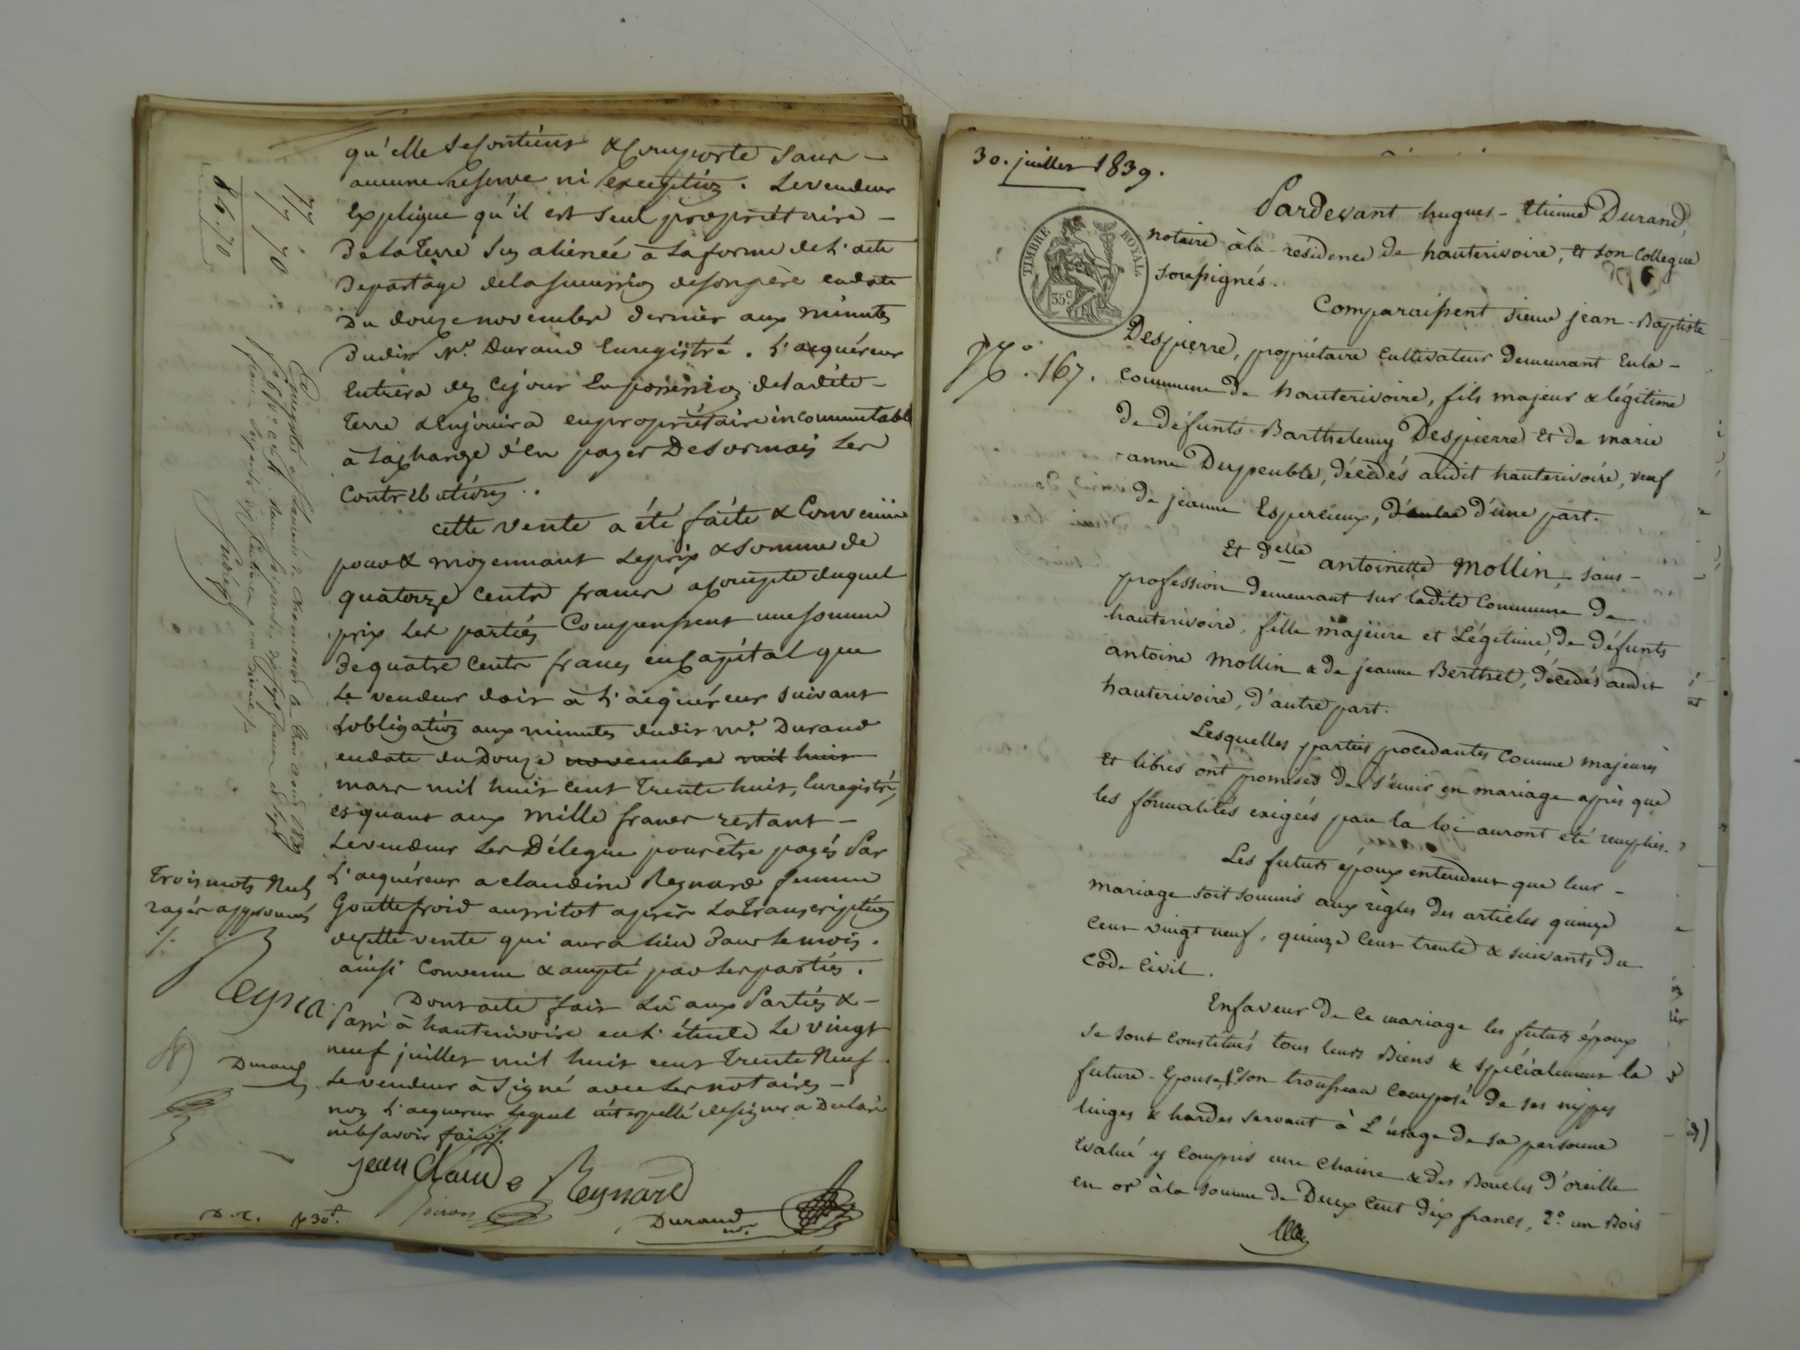 qu'elle se contient & comporte sans
aucune reserve ni exception. Le vendeur
explique qu'il est seul propriétaire
de la terre sus aliénée à la forme de l'acte
de partage de la succession de son père en date
du douze novembre dernier aux minutes
dudit Me. Durand enregistré. L'acquéreur
entrera dez ce jour en possession de ladite
terre & en jouira en propriétaire incommutable
à la charge d'en payer desormais les
contributions.
cette vente a été faite & convenue
pour & moyennant le prix & somme de
quatorze cents francs a compte duquel
prix les parties compensent une somme
de quatre cents francs en capital que
le vendeur doit à l'acquéreur suivant
l'obligation aux minutes dudit Me. Durand
en date du Douze novembre mil huit
mars mil huit cent trente huit, enregistré,
et quant aux mille francs restant
le vendeur les délègue pour être payés par
l'acquéreur a claudine Reynard femme
Gouttefroid aussitot après la transcription
de cette vente qui aura lieu dans le mois.
ainsi convenu & accepté par les parties.
Dont acte fait lu aux parties &
passé à hauterivoire en l'étude le vingt
neuf juillet mil huit cent trente neuf.
Le vendeur à signé avec les notaires
non l'acquereur lequel interpellé de signer a déclaré
ne le savoir faire.
jean Claude Reynard
Durand
nre.
D. r. f 30c.
77
7 70
84.70
trois mots nuls
rayés approuvés
Durand
30. juillet 1839.
TIMBRE ROYAL
35c
No. 167.
Pardevant hugues-Etienne Durand,
notaire à la résidence de hauterivoire, et son collegue
soussignés.
Comparaissent sieur jean-Baptiste
Despierre, propriétaire cultivateur demeurant en la
commune de hauterivoire, fils majeur & légitime
de défunts Barthelemy Despierre et de marie
anne Duypeuble, décédés audit hauterivoire, veuf
de jeanne Esperlieux, d'autre d'une part.
Et delle antoinette Mollin, sans
profession demeurant sur ladite commune de
hauterivoire, fille majeure et Légitime, de défunts
antoine Mollin & de jeanne Berthet, décédés audit
hauterivoire, d'autre part.
Lesquelles parties procedantes comme majeures
et libres ont promises de s'unir en mariage après que
les formalités exigées par la loi auront été remplies.
Les futurs époux entendent que leur
mariage soit soumis aux règles des articles quinze
cent vingt neuf, quinze cent trente & suivants du
code civil.
En faveur de ce mariage les futurs époux
se sont constitués tous leurs Biens & spécialement la
future Epouse, 1o son trousseau composé de ses nippes
linges & hardes servant à L'usage de sa personne
évalué y compris une chaine & des Boucles d'oreille
en or à la somme de Deux cent dix francs, 2o un Bois